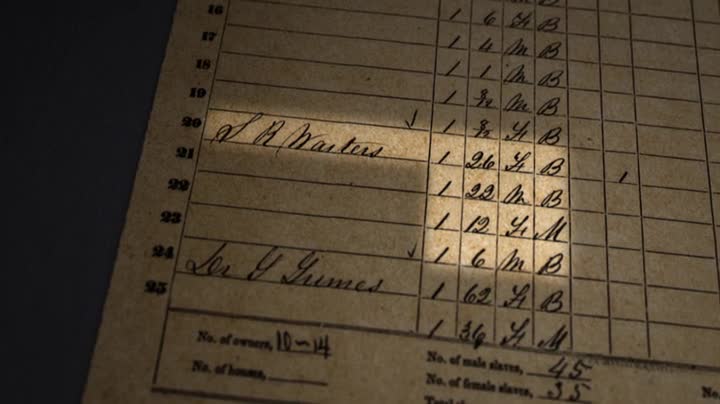 B
1 6 F B
16 1 4 M B
17 1 1 M B
18 1 3/12 M B
19 1 3/12 F B
20 S R Warters 1 26 F B
21 1 22 M B
22 1 12 F M
23 1 6 M B
24 Dr G Grimes 1 62 F B
25 1 36 F M
No. of owners, 10-14 No. of male slaves, 45
No. of houses, No. of female slaves, 35 No
Total